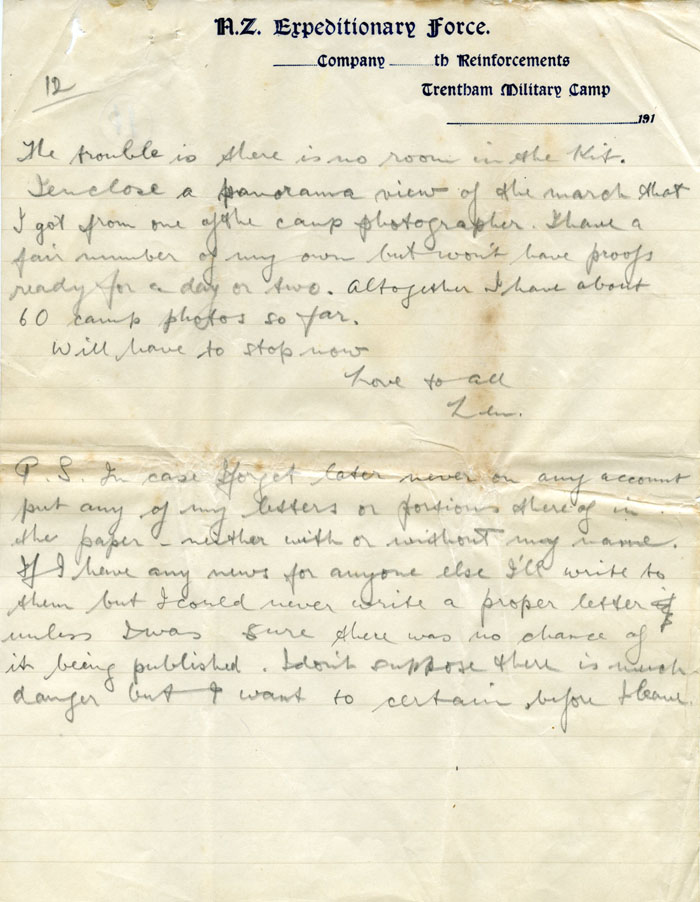 N.Z. Expeditionary Force.
Company th Reinforcements
Trentham Military Camp
191
12
The trouble is there is no room in the Kit.
I enclose a panorama view of the march that
I got from one of the camp photographer. I have a
fair number of my own but won't have proofs
ready for a day or two. Altogether I have about
60 camp photos so far.
Will have to stop now
Love to all
Len.
P.S. In case I forget later never on any account
put any of my letters or portions thereof in
the paper - neither with or without my name.
If I have any news for anyone else I'll write to
them but I could never write a proper letter
unless I was sure there was no chance of
it being published. I don't suppose there is much
danger but I want to certain before I leave.